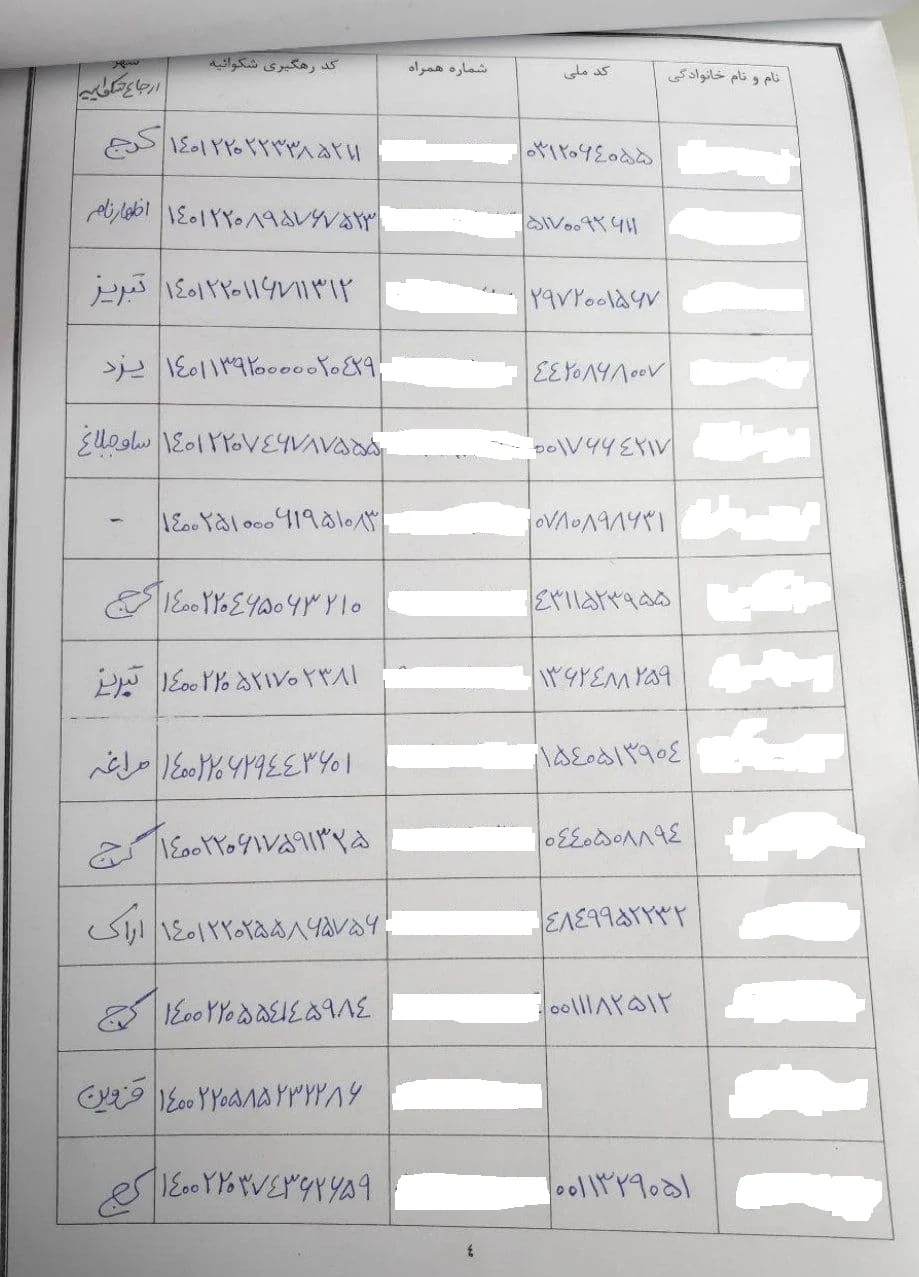 نام و نام خانوادگی کد ملی شماره همراه کد رهگیری شکوائیه شهر ارجاع شکواییه
۰۳۱۲۰۶۴۰۵۵ ۱۴۰۱۲۲۰۲۲۳۳۸۵۲۱۱ کرج
۵۱۷۰۰۹۲۶۱۱ ۱۴۰۱۲۲۰۸۹۵۷۶۷۵۲۳ اظهارنامه
۲۹۷۲۰۰۱۵۶۷ ۱۴۰۱۲۲۰۱۱۶۷۱۱۳۱۲ تبریز
۴۴۲۰۸۶۸۰۰۷ ۱۴۰۱۱۳۹۲۰۰۰۰۰۲۰۴۲۹ یزد
۰۰۱۷۶۶۴۲۱۷ ۱۴۰۱۲۲۰۷۴۶۷۸۷۵۵۵ ساوجبلاغ
۰۷۸۰۸۹۸۶۳۱ ۱۴۰۰۲۵۱۰۰۰۶۱۹۵۱۰۸۳ -
۴۳۱۱۵۲۳۹۵۵ ۱۴۰۰۲۲۰۴۶۵۰۶۳۲۱۰ کرج
۱۳۶۲۴۸۸۲۵۹ ۱۴۰۰۲۲۰۵۲۱۷۰۲۳۸۱ تبریز
۱۵۴۰۵۱۳۹۰۴ ۱۴۰۰۲۲۰۶۲۹۴۴۳۶۰۱ مراغه
۰۴۴۰۵۰۸۸۹۴ ۱۴۰۰۲۲۰۶۱۷۵۹۱۳۲۵ کرج
۴۸۴۹۹۵۲۲۳۲ ۱۴۰۱۲۲۰۲۵۵۸۶۵۷۵۶ اراک
۰۰۱۱۱۸۲۵۱۲ ۱۴۰۰۲۲۰۵۵۴۱۴۵۹۸۴ کرج
۱۴۰۰۲۲۰۵۸۵۲۳۲۲۸۶ قزوین
۰۰۱۱۳۲۹۰۵۱ ۱۴۰۰۲۲۰۳۷۴۳۶۲۶۵۹ کرج
۴